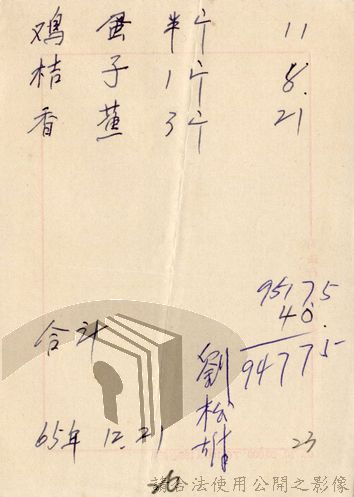 鸡 蛋 半斤 11
桔 子 1斤 8.
香 蕉 3斤 21
95175
40.
合计
94775
劉松雄
65年 12.21
23
請合法使用公開之影像